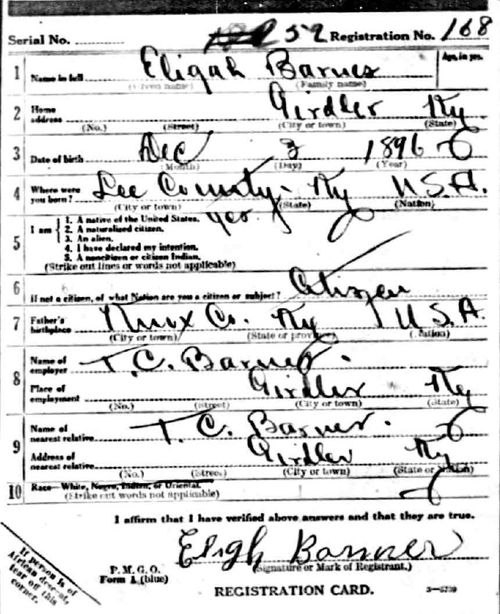 Serial No. 52 Registration No. 168
1 Name in full Eligah Barnes Age, in yrs.
(Given name) (Family name)
2 Home address Girdler Ky
(No.) (Street) (City or town) (State)
3 Date of birth Dec 3 1896
(Month) (Day) (Year)
4 Where were you born? Lee County Ky U.S.A.
(City or town) (State) (Nation)
yes
5 I am 1. A native of the United States.
2. A naturalized citizen.
3. An alien.
4. I have declared my intention.
5. A noncitizen or citizen Indian.
(Strike out lines or words not applicable)
6 If not a citizen, of what Nation are you a citizen or subject? Citizen
7 Father's birthplace Knox Co. Ky U.S.A
(City or town) (State or province) (Nation)
8 Name of employer T. C. Barnes.
Place of employment Girdler Ky
(No.) (Street) (City or town) (State)
9 Name of nearest relative T. C. Barnes.
Address of nearest relative Girdler Ky
(No.) (Street) (City or town) (State or Nation)
10 Race—White, Negro, Indian, or Oriental.
(Strike out words not applicable)
I affirm that I have verified above answers and that they are true.
Eligh Barnes
(Signature or Mark of Registrant.)
P. M. G. O.
Form 1 (blue)
REGISTRATION CARD.
If person is of
African descent,
tear off this
corner.